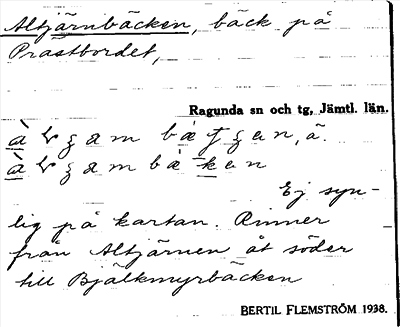 Altjärnbäcken, bäck på
Prästbordet,
Ragunda sn och tg, Jämtl. län.
Ej syn-
lig på kartan. Rinner
från Altjärnen åt söder
till Bjälkmyrbäcken
BERTIL FLEMSTRÖM 1938.